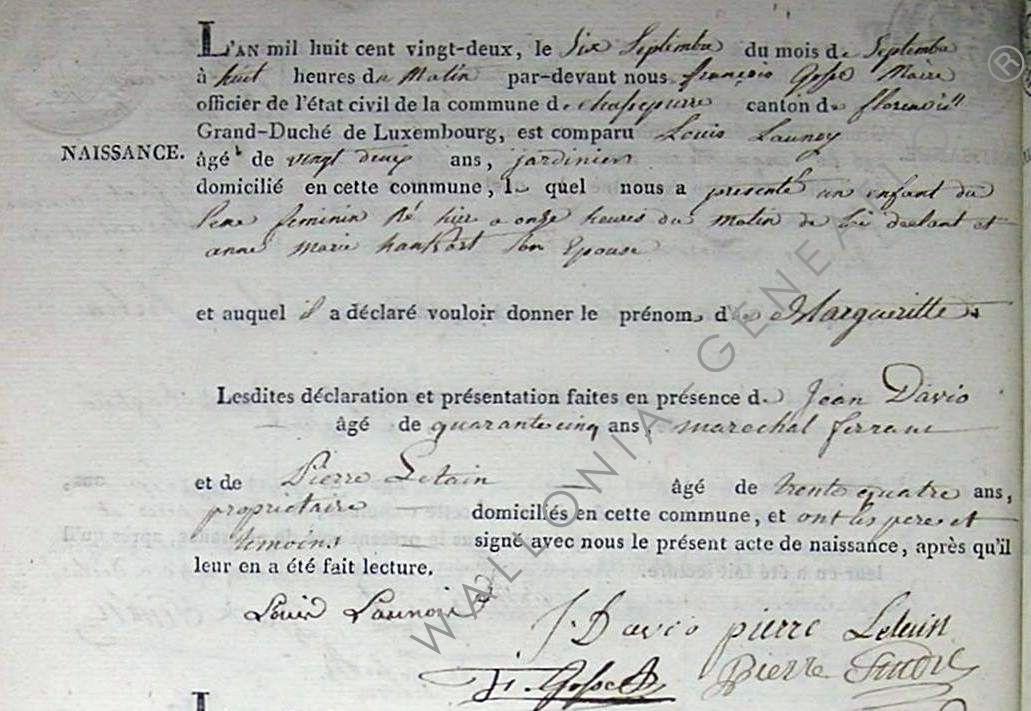 L'AN mil huit cent vingt-deux, le Six Septembre du mois de Septembre
à huit heures du Matin par-devant nous françois Gosse Maire
officier de l'état civil de la commune de chassepierre canton de florenville
Grand-Duché de Luxembourg, est comparu Louis Launoy
NAISSANCE.
âgé de vingt deux ans, jardinier
domicilié en cette commune, le quel nous a présenté un enfant du
Sexe feminin né hier a onze heures du matin de lui declarant et
anne marie hankart son Epouse
et auquel il a déclaré vouloir donner le prénom de Margueritte
Lesdites déclaration et présentation faites en présence de Jean David
âgé de quarante cinq ans, marechal ferrant
et de Pierre Letain âgé de trente quatre ans,
propriétaire domiciliés en cette commune, et ont les pere et
temoins signé avec nous le présent acte de naissance, après qu'il
leur en a été fait lecture.
Louis Launois
J. David pierre Letain
Pierre
WALLONIA GENEALOGIE ®
L